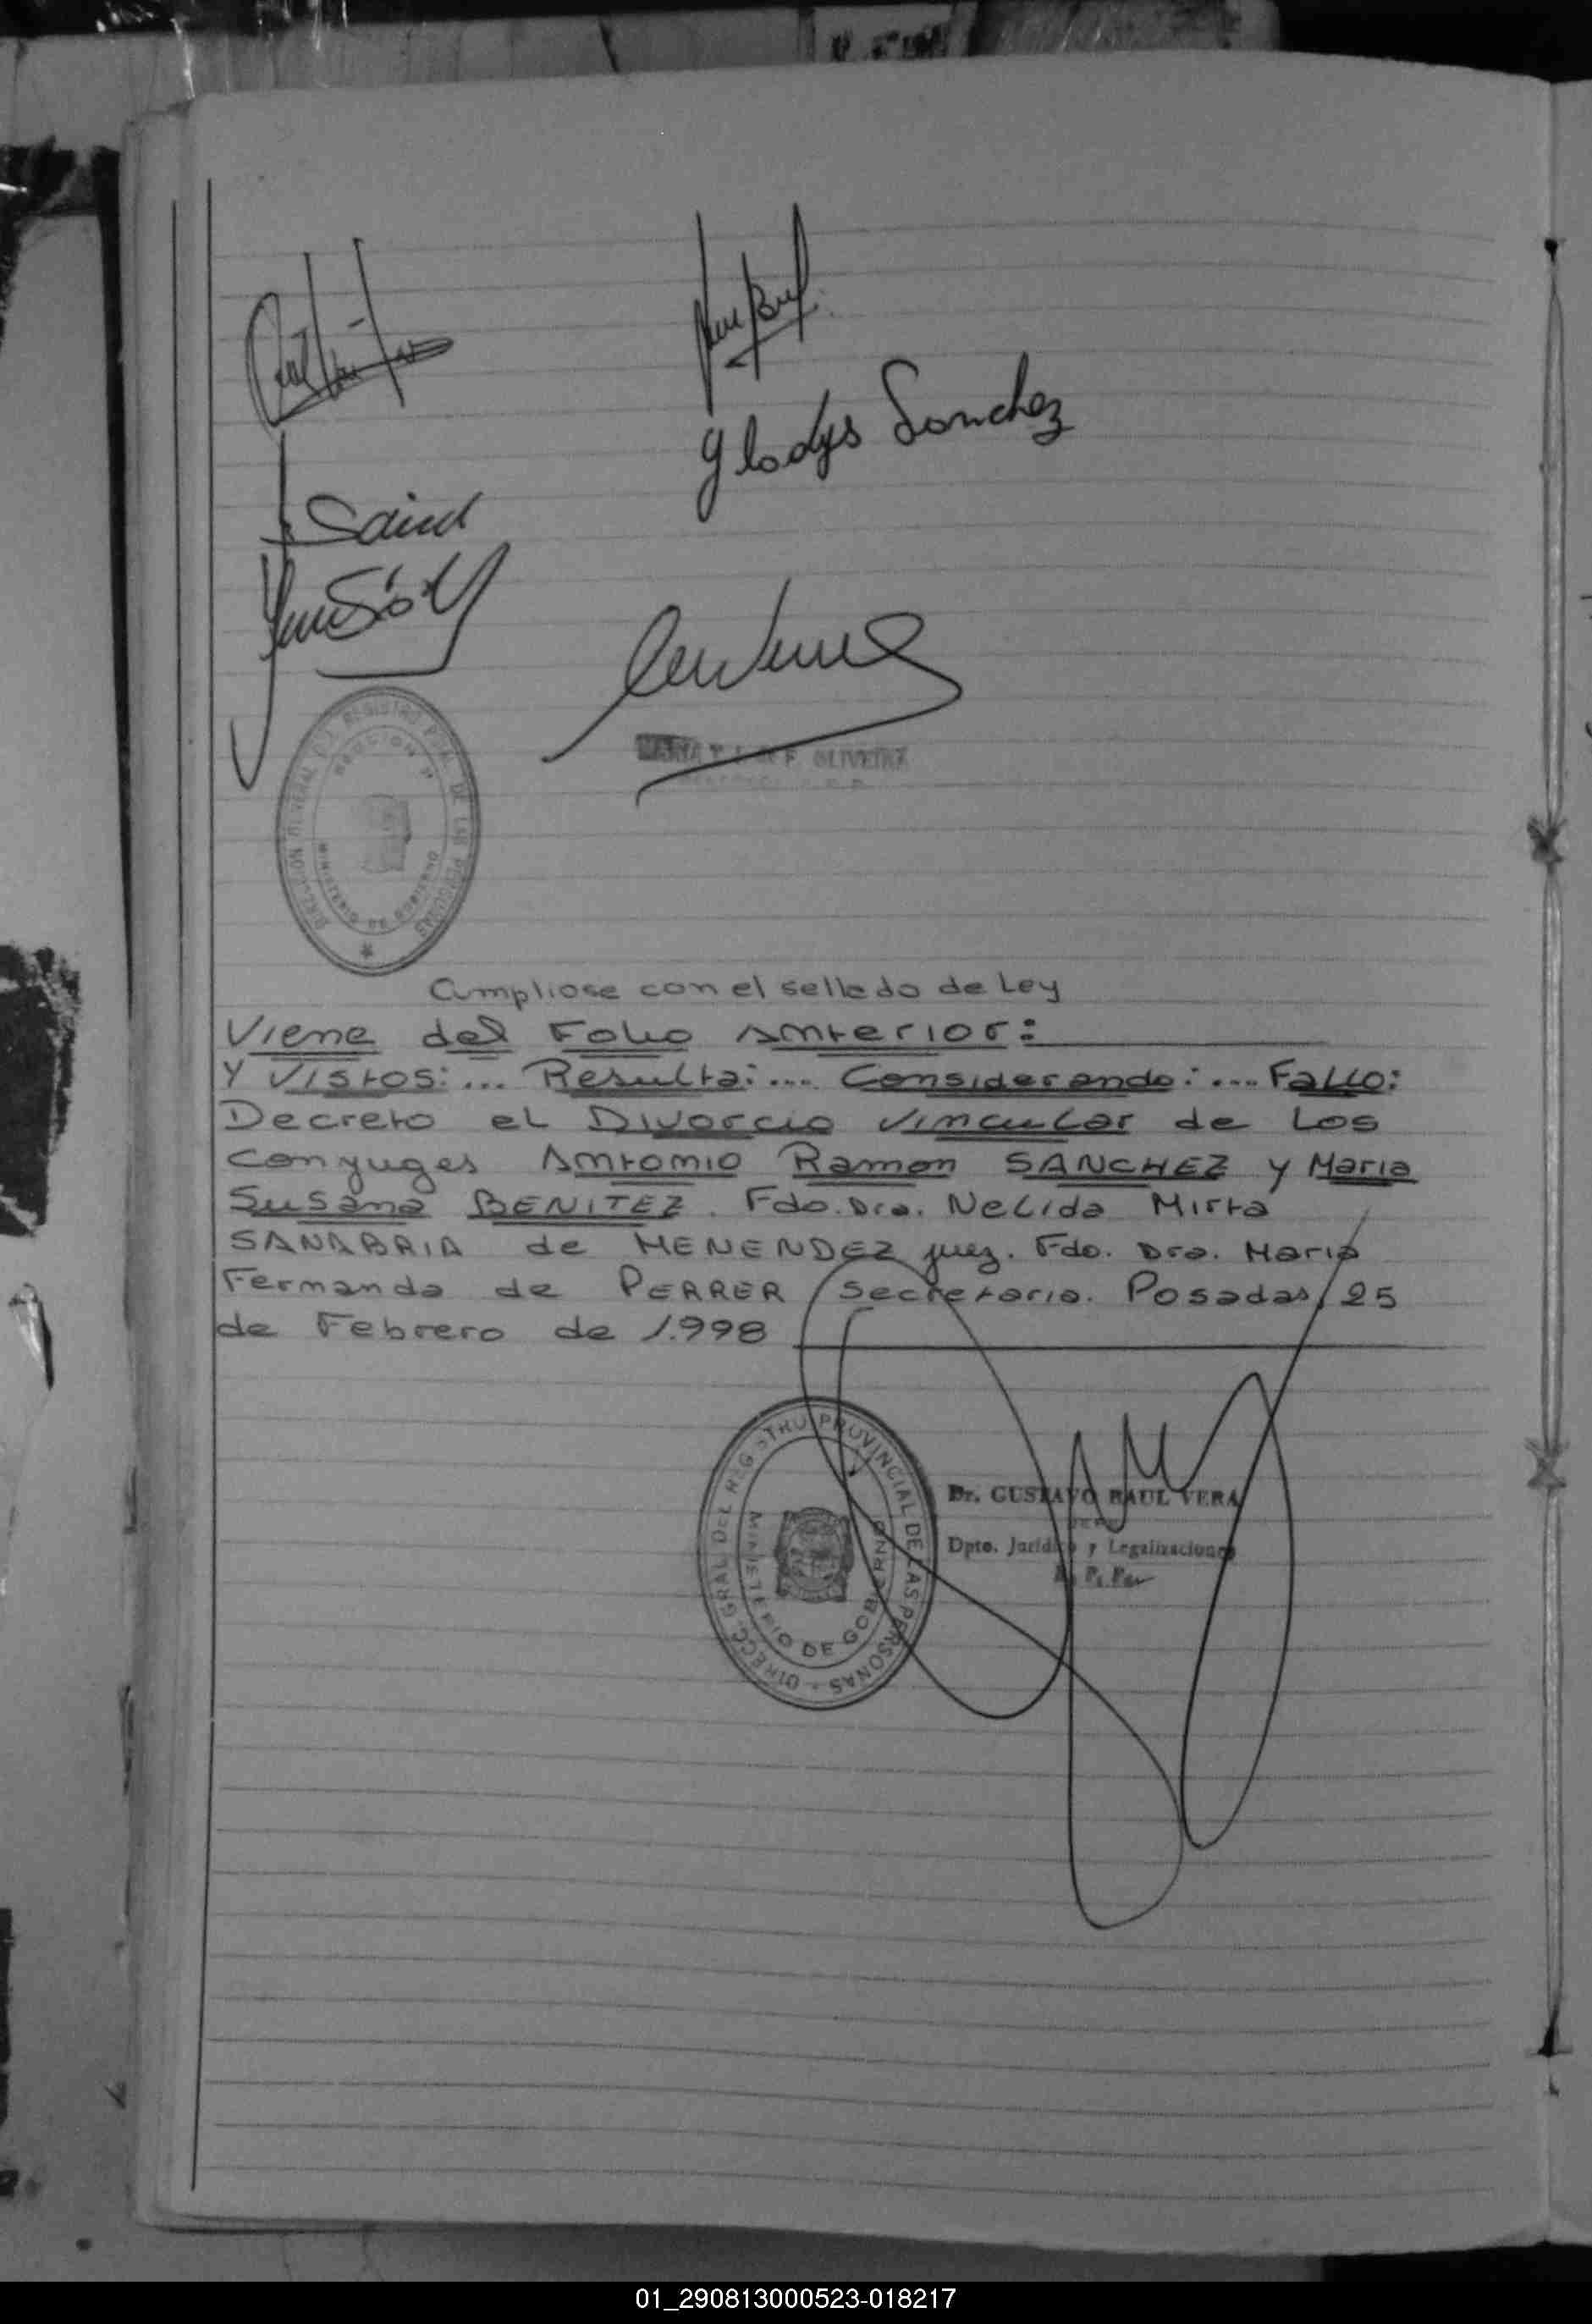 Gladys Sanchez
MARIA T. L. de F. OLIVEIRA
DIRECCION GENERAL DEL REGISTRO P. DE LAS PERSONAS
MINISTERIO DE GOBIERNO
Cumpliose con el sellado de Ley
Viene del Folio Anterior:
Y Vistos: ... Resulta: ... Considerando: ... Fallo:
Decreto el Divorcio Vincular de Los
Conyuges Antonio Ramon SANCHEZ y Maria
Susana BENITEZ. Fdo. Dra. Nelida Mirta
SANABRIA de MENENDEZ juez. Fdo. Dra. Maria
Fernanda de PERRER Secretaria. Posadas, 25
de Febrero de 1.998
DIRECC. GRAL DEL REGISTRO PROVINCIAL DE LAS PERSONAS
MINISTERIO DE GOBIERNO
Dr. GUSTAVO RAUL VERA
JEFE
Dpto. Jurídico y Legalizaciones
01_290813000523-018217